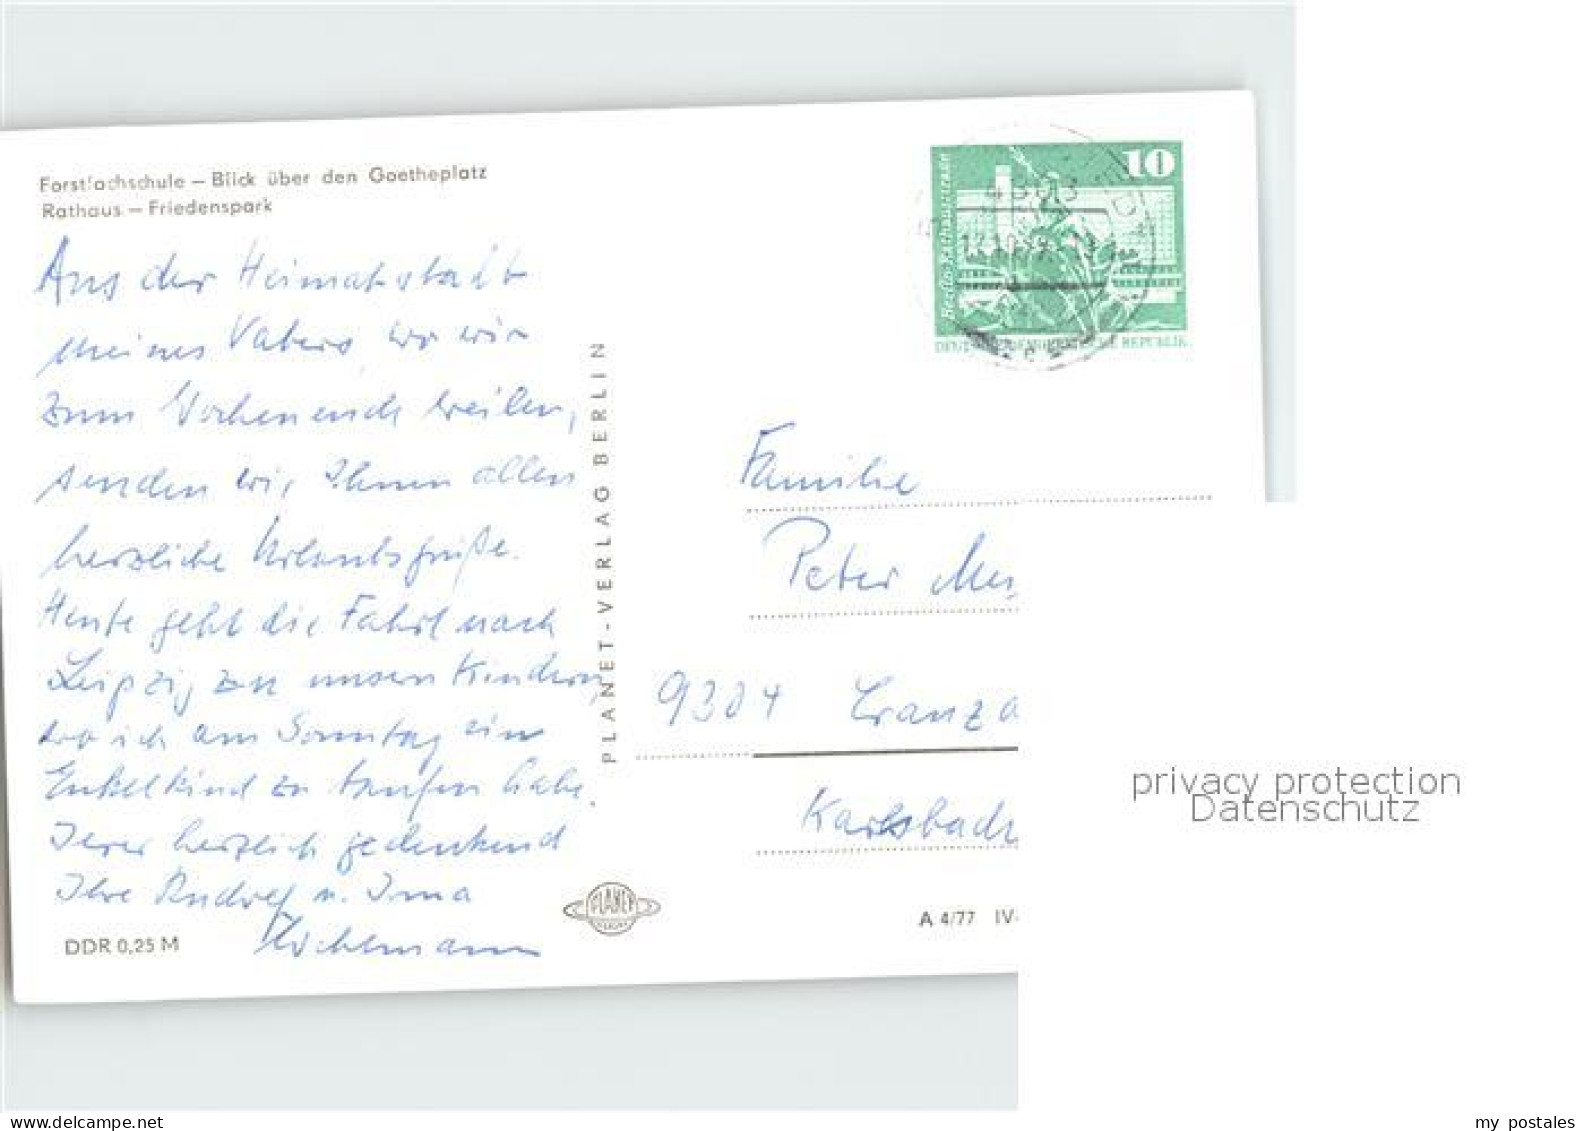 Forstfachschule – Blick über den Goetheplatz
Rathaus – Friedenspark
Aus der Heimatstadt
meines Vaters, wo wir
zum Wochenende weilen,
senden wir Ihnen allen
herzliche Urlaubsgrüße.
Heute geht die Fahrt nach
Leipzig zu unsern Kindern,
wo ich am Sonntag ein
Enkelkind zu taufen habe.
Ihrer herzlich gedenkend
Ihre Rudolf u. Irma
DDR 0,25 M
PLANET-VERLAG BERLIN
PLANET
10
Berlin-Rathausstraße
DEUTSCHE DEMOKRATISCHE REPUBLIK
Familie
Peter
9304 Cranza
Karlsbade
A 4/77 IV-
privacy protection
Datenschutz
my postales